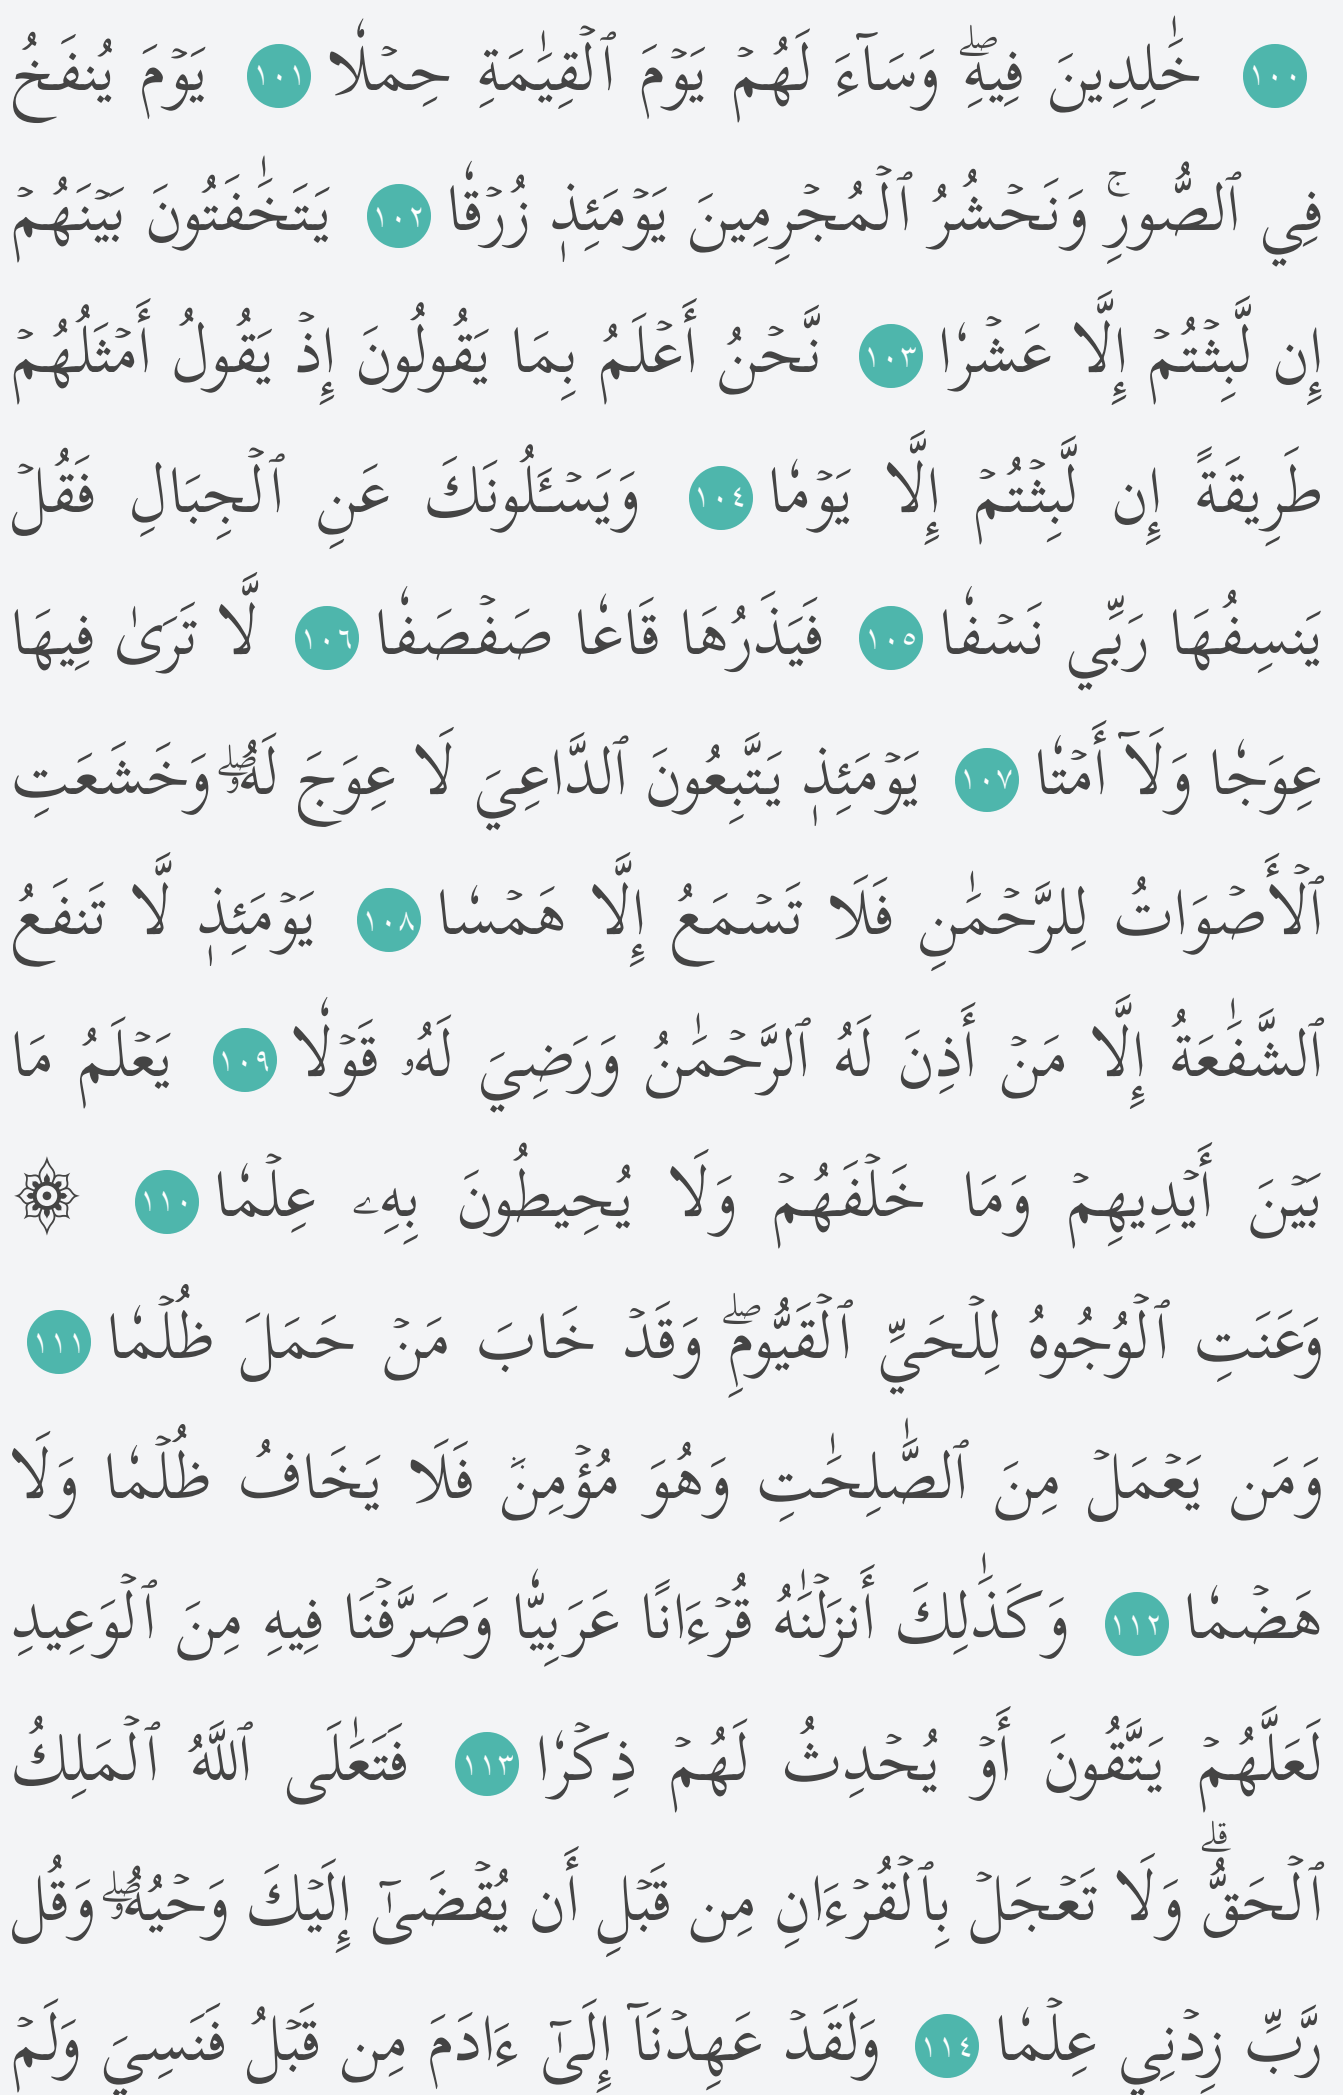 ١٠٠ خَٰلِدِينَ فِيهِۖ وَسَآءَ لَهُمۡ يَوۡمَ ٱلۡقِيَٰمَةِ حِمۡلٗا ١٠١ يَوۡمَ يُنفَخُ
فِي ٱلصُّورِۚ وَنَحۡشُرُ ٱلۡمُجۡرِمِينَ يَوۡمَئِذٖ زُرۡقٗا ١٠٢ يَتَخَٰفَتُونَ بَيۡنَهُمۡ
إِن لَّبِثۡتُمۡ إِلَّا عَشۡرٗا ١٠٣ نَّحۡنُ أَعۡلَمُ بِمَا يَقُولُونَ إِذۡ يَقُولُ أَمۡثَلُهُمۡ
طَرِيقَةً إِن لَّبِثۡتُمۡ إِلَّا يَوۡمٗا ١٠٤ وَيَسۡـَٔلُونَكَ عَنِ ٱلۡجِبَالِ فَقُلۡ
يَنسِفُهَا رَبِّي نَسۡفٗا ١٠٥ فَيَذَرُهَا قَاعٗا صَفۡصَفٗا ١٠٦ لَّا تَرَىٰ فِيهَا
عِوَجٗا وَلَآ أَمۡتٗا ١٠٧ يَوۡمَئِذٖ يَتَّبِعُونَ ٱلدَّاعِيَ لَا عِوَجَ لَهُۥۖ وَخَشَعَتِ
ٱلۡأَصۡوَاتُ لِلرَّحۡمَٰنِ فَلَا تَسۡمَعُ إِلَّا هَمۡسٗا ١٠٨ يَوۡمَئِذٖ لَّا تَنفَعُ
ٱلشَّفَٰعَةُ إِلَّا مَنۡ أَذِنَ لَهُ ٱلرَّحۡمَٰنُ وَرَضِيَ لَهُۥ قَوۡلٗا ١٠٩ يَعۡلَمُ مَا
بَيۡنَ أَيۡدِيهِمۡ وَمَا خَلۡفَهُمۡ وَلَا يُحِيطُونَ بِهِۦ عِلۡمٗا ١١٠ ۞
وَعَنَتِ ٱلۡوُجُوهُ لِلۡحَيِّ ٱلۡقَيُّومِۖ وَقَدۡ خَابَ مَنۡ حَمَلَ ظُلۡمٗا ١١١
وَمَن يَعۡمَلۡ مِنَ ٱلصَّٰلِحَٰتِ وَهُوَ مُؤۡمِنٞ فَلَا يَخَافُ ظُلۡمٗا وَلَا
هَضۡمٗا ١١٢ وَكَذَٰلِكَ أَنزَلۡنَٰهُ قُرۡءَانًا عَرَبِيّٗا وَصَرَّفۡنَا فِيهِ مِنَ ٱلۡوَعِيدِ
لَعَلَّهُمۡ يَتَّقُونَ أَوۡ يُحۡدِثُ لَهُمۡ ذِكۡرٗا ١١٣ فَتَعَٰلَى ٱللَّهُ ٱلۡمَلِكُ
ٱلۡحَقُّۗ وَلَا تَعۡجَلۡ بِٱلۡقُرۡءَانِ مِن قَبۡلِ أَن يُقۡضَىٰٓ إِلَيۡكَ وَحۡيُهُۥۖ وَقُل
رَّبِّ زِدۡنِي عِلۡمٗا ١١٤ وَلَقَدۡ عَهِدۡنَآ إِلَىٰٓ ءَادَمَ مِن قَبۡلُ فَنَسِيَ وَلَمۡ